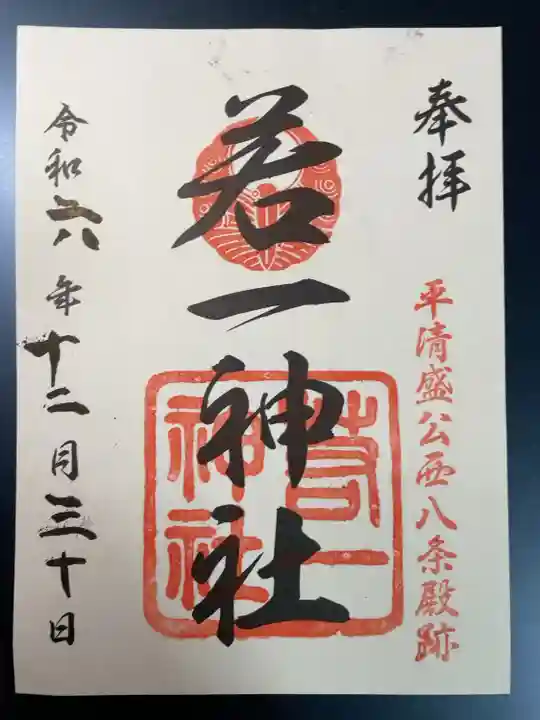 奉拝
平清盛公西八条殿跡
若一神社
若一神社
令和六年十二月三十日